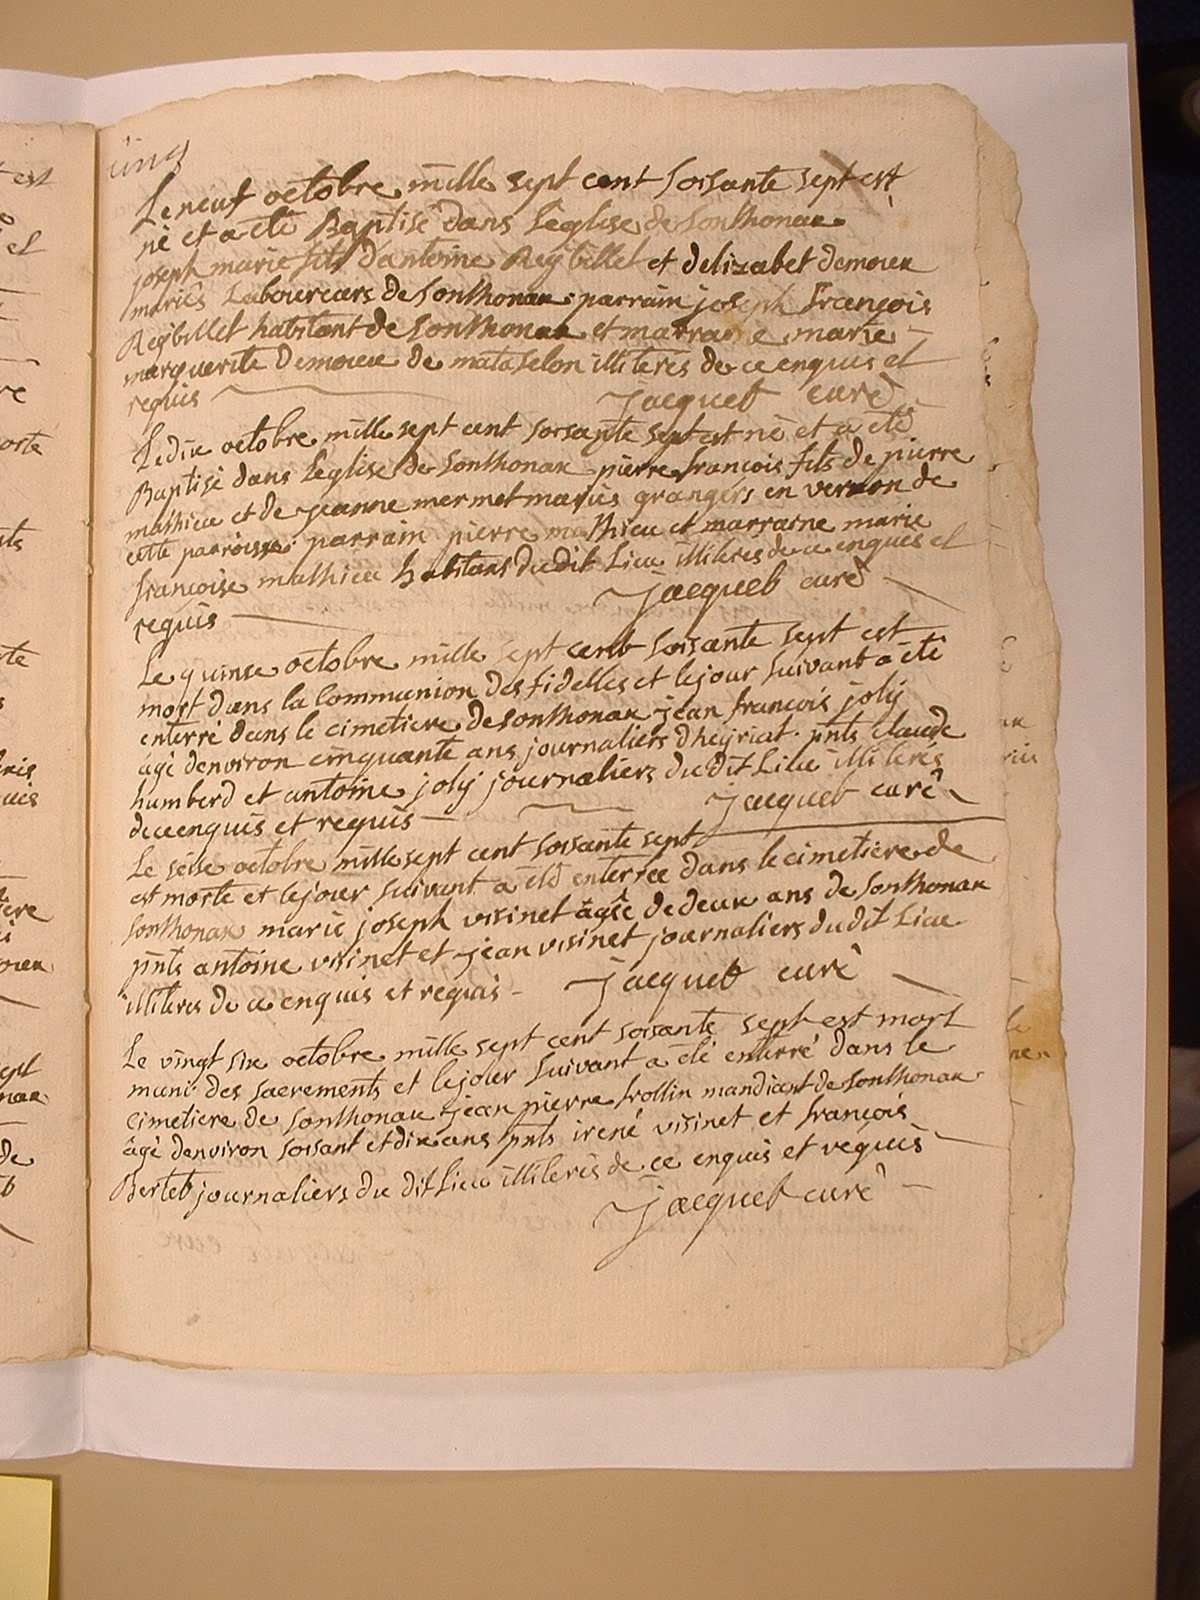 cinq
Le neuf octobre mille sept cent soisante sept est
né et a été Baptisé dans Leglise de Sonthonax
joseph marie fils dantoine Reybillet et delizabet demoux
mariés Laboureurs de Sonthonax parrain joseph françois
Reybillet habitant de Sonthonax et marraine marie
marguerite Demoux de matafelon illiterés de ce enquis et
requis Jacquet curé
Le dix octobre mille sept cent soisante sept est né et a été
Baptisé dans Leglise de Sonthonax pierre françois fils de pierre
mathieu et de jeanne mermet mariés grangers en vernon de
cette parroisse parrain pierre mathieu et marraine marie
françoise mathieu habitans du dit Lieu illiterés de ce enquis et
requis Jacquet curé
Le quinse octobre mille sept cent soisante sept est
mort dans la Communion des fidelles et le jour suivant a été
enterré dans le cimetiere de Sonthonax jean françois joly
âgé denviron cinquante ans journaliers dheyriat pnts Claude
humberd et antoine joly journaliers du dit Lieu illiterés
de ce enquis et requis Jacquet curé
Le séise octobre mille sept cent soisante sept
est morte et le jour suivant a été enterrée dans le cimetiere de
Sonthonax marie joseph visinet âgée de deux ans de Sonthonax
pnts antoine visinet et jean visinet journaliers du dit Lieu
illiterés de ce enquis et requis Jacquet curé
Le vingt six octobre mille sept cent soisante sept est mort
muni des sacrements et le jour suivant a été enterré dans le
cimetiere de Sonthonax jean pierre frollin mandiant de Sonthonax
âgé denviron soisant et dix ans pnts irené visinet et françois
Bertet journaliers du dit Lieu illiterés de ce enquis et requis
Jacquet curé